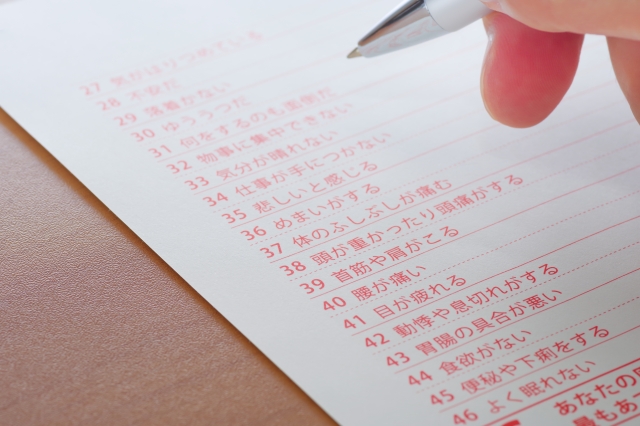 27 気がはりつめている
28 不安だ
29 落着かない
30 ゆううつだ
31 何をするのも面倒だ
32 物事に集中できない
33 気分が晴れない
34 仕事が手につかない
35 悲しいと感じる
36 めまいがする
37 体のふしぶしが痛む
38 頭が重かったり頭痛がする
39 首筋や肩がこる
40 腰が痛い
41 目が疲れる
42 動悸や息切れがする
43 胃腸の具合が悪い
44 食欲がない
45 便秘や下痢をする
46 よく眠れない
あなたの
最もあ